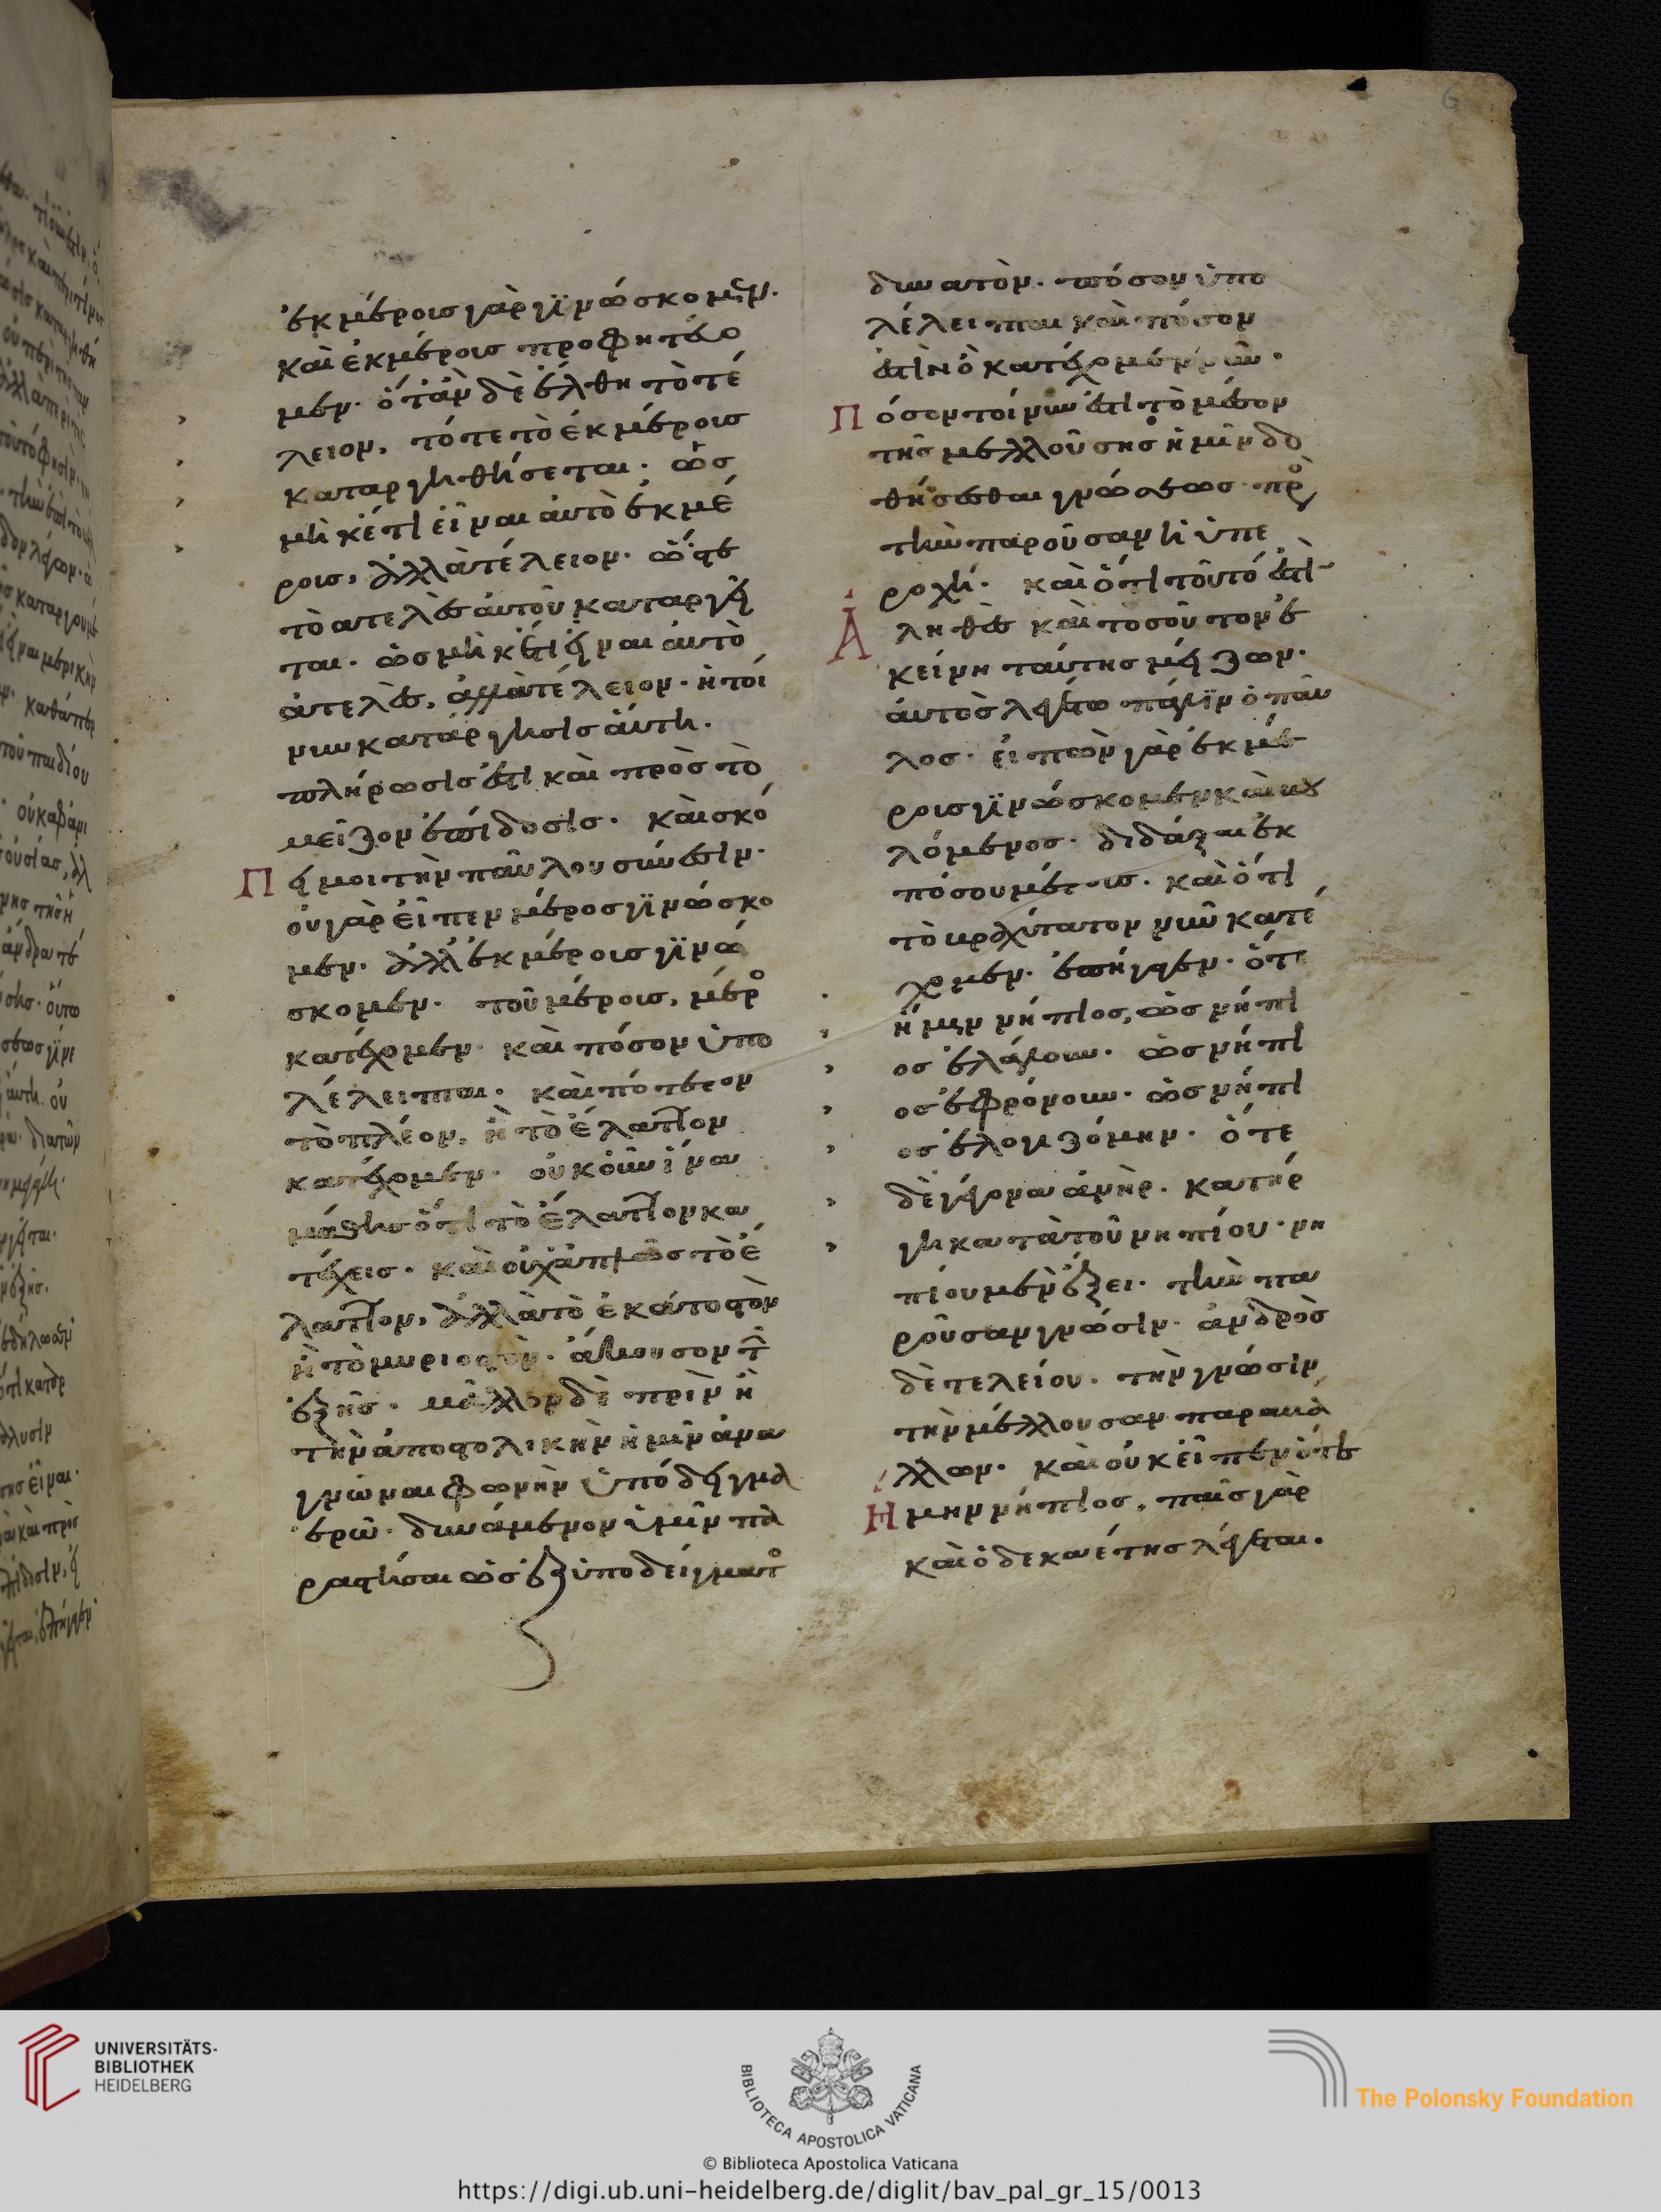 6
ἐκ μέρους γὰρ γϊνώσκομεν.
καὶ ἐκ μέρους προφητεύο
μεν. ὅτὰν δὲ ἔλθη τὸ τέ
λειον, τότε τὸ ἐκ μέρους
καταργηθήσεται. ὥσ
μὴκέτι εἶναι αὐτὸ ἐκ μέ
ρους, ἀλλὰ τέλειον. ὥστε
τὸ ατελὲσ αὐτοῦ καταργεῖ
ται. ὡσ μὴκέτι εἶναι αὐτὸ
ἀτελὲσ, ἀλλὰ τέλειον. ἡ τοί
νυν κατάργησισ ἅυτη.
πλήρωσίσ ἐστι καὶ πρὸσ τὸ
μεῖζον ἐπίδοσισ. καὶ σκό
Πει μοι τὴν παύλου σύνεσιν.
οὐ γὰρ εἶπεν μέροσ γϊνώσκο
μεν. ἀλλ' ἐκ μέρουσ γϊνώ
σκομεν. τοῦ μέρουσ, μέρο
κατέχομεν. καὶ πόσον ὑπο
λέλειπται. καὶ πότερον
τὸ πλέον, ἢ τὸ ἔλαττον
κατέχομεν. οὐκοῦν ἵνα
μάθησ ὅτι τὸ ἔλαττον κα
τέχεισ. καὶ οὐχ ἁπλῶσ τὸ ἔ
λαττον, ἀλλὰ τὸ ἑκατοστὸν
ἢ τὸ μυριοστὸν. ἄκουσον τ
ἑξῆσ. μᾶλλον δὲ πρὶν ἢ
τὴν ἀποστολικὴν ἡμῖν ἀνα
γνῶναι φωνὴν ὑπόδειγμα
ἐρῶ. δυνάμενον ὑμῖν πα
ραστῆσαι ὡσ ἐξ ὑποδείγματο
δυνατὸν. πόσον ὑπο
λέλειπται καὶ πόσον
ἐστὶν ὃ κατέχομεν νῦν.
Πόσον τοίνυν ἐστὶ τὸ μέσον
τῆσ μελλούσησ ἡμῖν δο
θήσεσθαι γνώσεωσ πρὸ
τὴν παροῦσαν ἡ ὑπε
ροχή. καὶ ὅτι τοῦτό ἐστὶ
Ἀληθὲσ καὶ τοσοῦτον ἐ
κείνη ταύτησ μείζων.
ἀυτὸσ λεγέτω πάλϊν ὁ παῦ
λοσ. εἰπὼν γὰρ ἐκ μέ
ρουσ γϊνώσκομεν καὶ βου
λόμενοσ. διδάξαι ἐκ
πόσου μέρουσ. καὶ ὅτι
τὸ βραχύτατον νῦν κατέ
χομεν. ἐπήγαγεν. ὅτε
ἤμην νήπιοσ, ὡσ νήπι
οσ ἐλάλουν. ὡσ νήπι
οσ ἐφρόνουν. ὡσ νήπι
οσ ἐλογιζόμην. ὅτε
δὲ γέγονα ἀνὴρ. κατήρ
γηκα τὰ τοῦ νηπίου. νη
πίου μὲν ἕξει. τὴν πα
ροῦσαν γνώσιν. ἀνδρὸσ
δὲ τελείου. τὴν γνώσιν
τὴν μέλλουσαν παραβά
λλων. καὶ οὐκ εἶπεν ὅτε
Ημην νήπιοσ, παῖσ γὰρ
καὶ ὁ δεκαέτησ λέγεται.
UNIVERSITÄTS-
BIBLIOTHEK
HEIDELBERG
BIBLIOTECA APOSTOLICA VATICANA
The Polonsky Foundation
© Biblioteca Apostolica Vaticana
https://digi.ub.uni-heidelberg.de/diglit/bav_pal_gr_15/0013